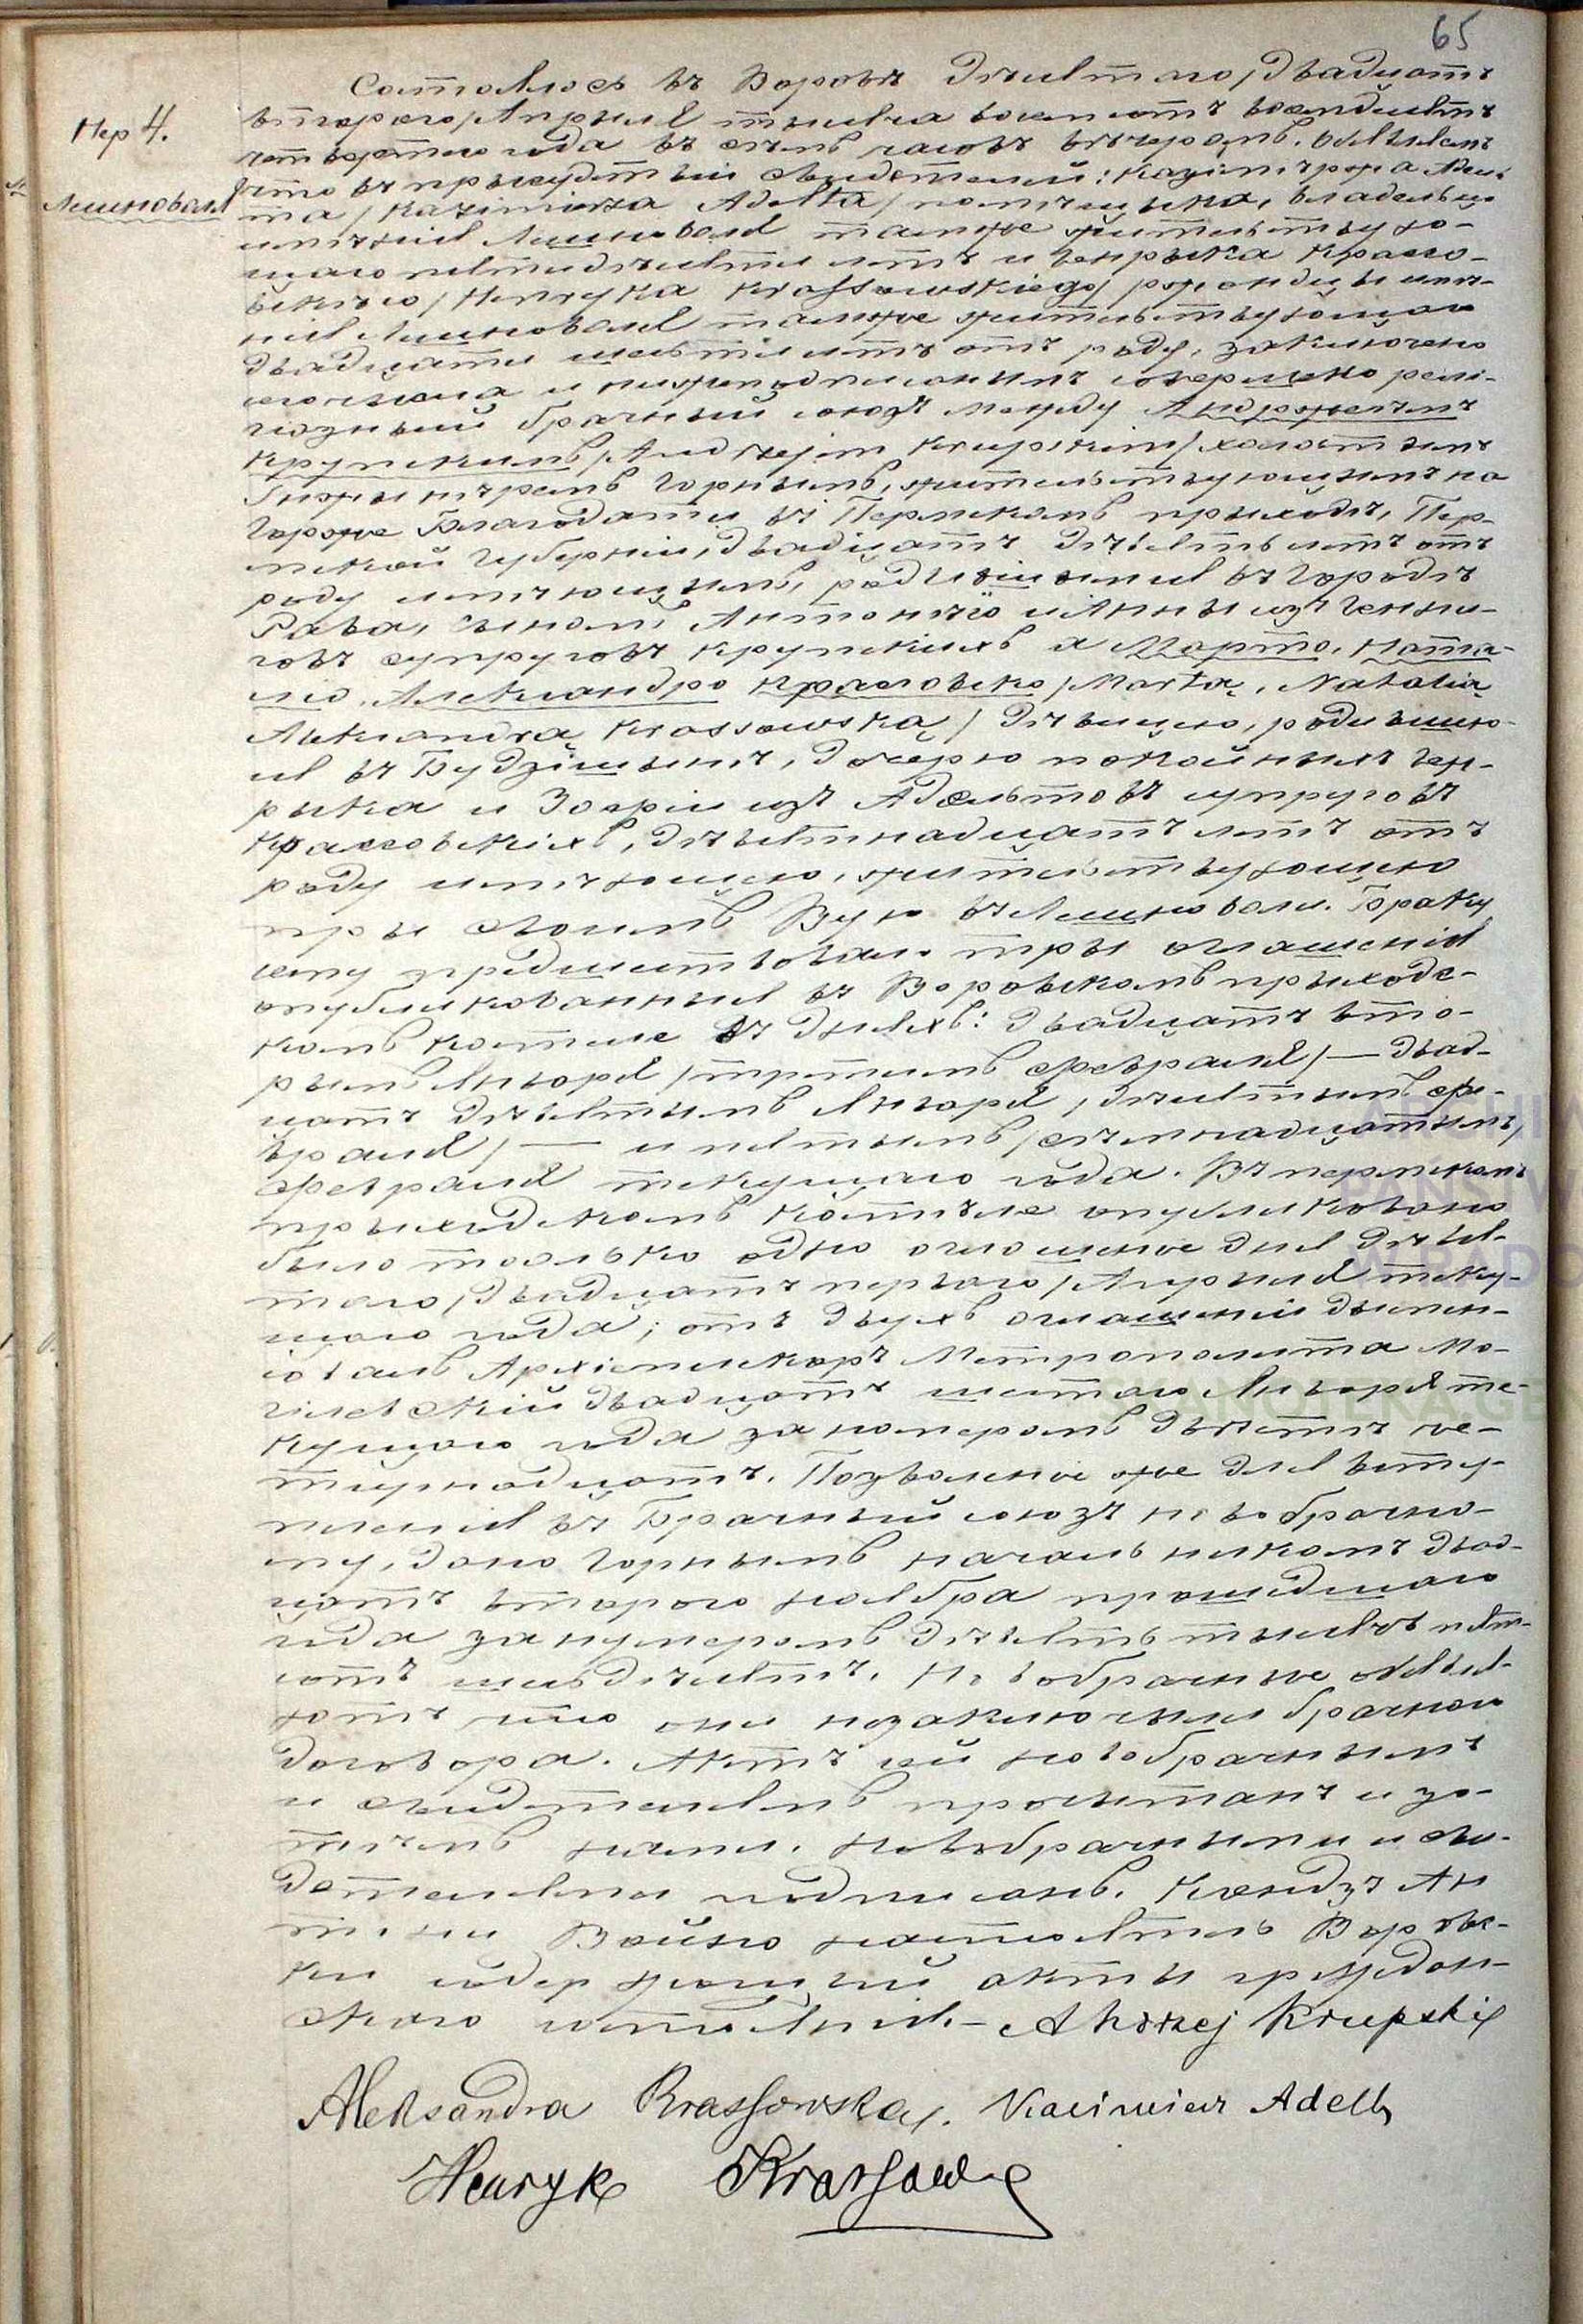 65
Нер 4.
Лишноваля
Состоялось въ Воровѣ десятаго /двадцать
втораго/ Апрыля тысяча восемсотъ восемдесятъ
четвертаго года въ семь часовъ вечеромъ. Объявляемъ
что въ присудствіи свидѣтелей: Казимѣржа Адел-
та /Kazimierza Adelta/ помѣщыка, владѣльца
имѣнія Лишноволя тамже жительствую-
щаго пятидесяти лѣтъ и Генрыка Крассо-
вскего /Henryka Krassowskiego/ ржондцы имѣ-
нія Лишноволя тамже жительствующаго
двадцати шести лѣтъ отъ роду, заключено
сего числа и нижеподписанымъ совершено рели-
гіозный брачный союзъ между Анджеемъ
Крупскимъ /Andrzejem Krupskim/ холостымъ
Инжынѣромъ Горнымъ, жительствующимъ на
Горже Благодати въ Пермскомъ прыходѣ, Пер-
мской Губерніи, двадцать девять лѣтъ отъ
роду имѣющымъ, родившымся въ городѣ
Рава, сыномъ Антонѣго и Анны изъ
супруговъ Крупскихъ а Марто, Ната-
лію, Александро Крассовско /Martą, Natalią
Aleksandrą Krassowską/ дѣвицею, родившею-
ся въ Будзишынѣ, дочерю покойныхъ Ген-
рыка и Зофіи изъ Адельтовъ супруговъ
Крассовскихъ, девятнадцать лѣтъ отъ
роду имѣющею, жительствующею
при своимъ Вую въ Лишноволи. Браку
сему предшествовало тры оглашенія
опубликованныя въ Воровскомъ прыходс-
комъ костеле въ дняхъ: двадцать вто-
рымъ Января /третимъ Февраля/ — двад-
цать девятымъ Января /десятымъ Фе-
враля/ — и пятымъ /семнадцатымъ/
Февраля текущаго года. Въ пермскомъ
прыходскомъ костеле опубликовано
было только одно оглошеніе дня девя-
таго /двадцать перваго/ Апрыля теку-
щаго года; отъ двухъ оглашеній диспен-
совалъ Архіепископъ Метрополита Мо-
гилевскій двадцать шестаго Января те-
кущаго года за номеромъ двѣстѣ че-
тырнадцать. Позволеніе же для всту-
пленія въ Брачный союзъ новобрачно-
му, дано Горнымъ начальникомъ двад-
цать втораго ноября прошедшаго
года за нумеромъ девять тысячъ пят-
сотъ шесьдесятъ. Новобрачные объявля-
ютъ что они незаключили брачнаго
договора. Актъ сей новобрачнымъ
и свидетелямъ прочытанъ и за-
тѣмъ нами, новобрачными и сви-
детелями подписанъ. Ксендзъ Ан
тони Война настоятель Воровс-
ки содержащій акты гражданс-
скаго состоянія — Andrzej Krupski
Aleksandra Krassowska. Kazimierz Adelt
Henryk Krassowski